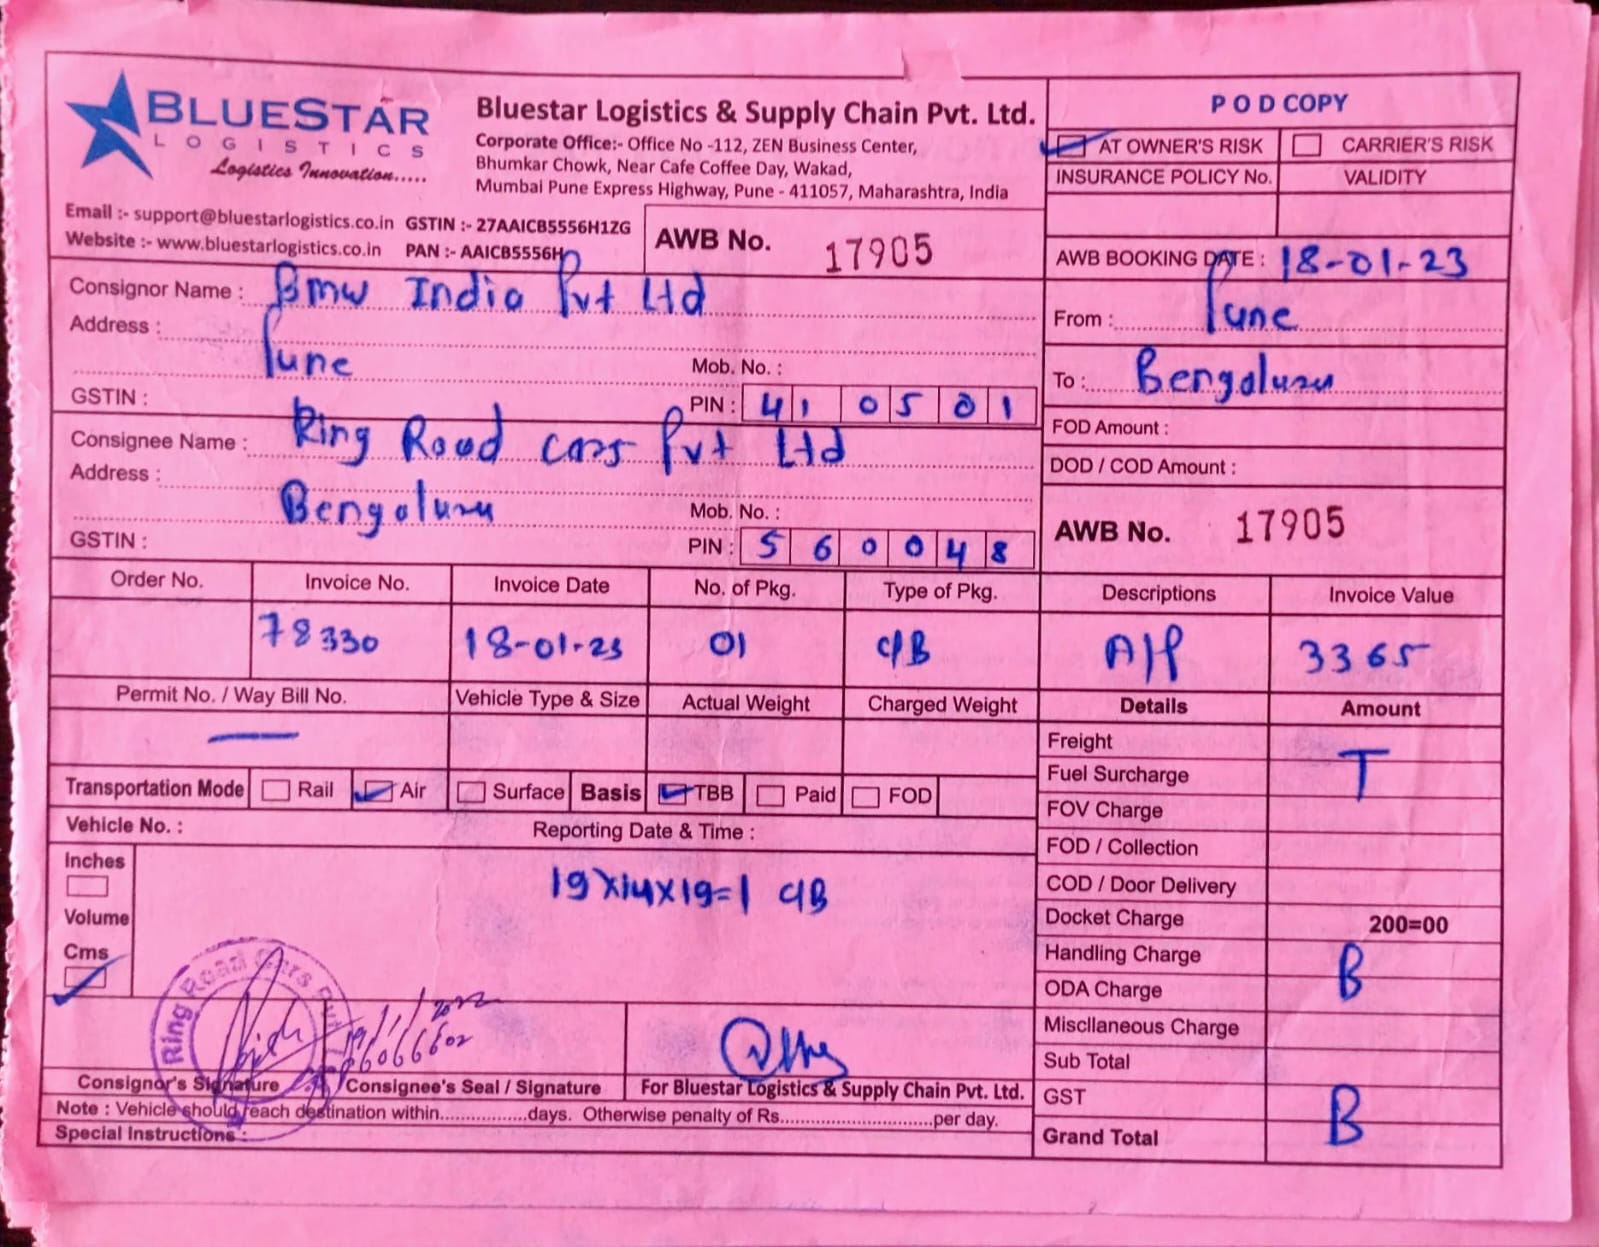 BLUESTAR
LOGISTICS
Logistics Innovation.....
Bluestar Logistics & Supply Chain Pvt. Ltd.
Corporate Office:- Office No -112, ZEN Business Center,
Bhumkar Chowk, Near Cafe Coffee Day, Wakad,
Mumbai Pune Express Highway, Pune - 411057, Maharashtra, India
Email :- support@bluestarlogistics.co.in GSTIN :- 27AAICB5556H1ZG
Website :- www.bluestarlogistics.co.in PAN :- AAICB5556H
AWB No. 17905
P O D COPY
AT OWNER'S RISK CARRIER'S RISK
INSURANCE POLICY No. VALIDITY
AWB BOOKING DATE : 18-01-23
From : Pune
To : Bengaluru
FOD Amount :
DOD / COD Amount :
AWB No. 17905
Consignor Name : Bmw India Pvt Ltd
Address :
Pune Mob. No. :
GSTIN : PIN : 410501
Consignee Name : Ring Road Cars Pvt Ltd
Address :
Bengaluru Mob. No. :
GSTIN : PIN : 560048
Order No. Invoice No. Invoice Date No. of Pkg. Type of Pkg. Descriptions Invoice Value
78330 18-01-23 01 C/B A/P 3365
Permit No. / Way Bill No. Vehicle Type & Size Actual Weight Charged Weight Details Amount
Freight
Fuel Surcharge T
FOV Charge
FOD / Collection
COD / Door Delivery
Docket Charge 200=00
Handling Charge B
ODA Charge
Miscllaneous Charge
Sub Total
GST B
Grand Total
Transportation Mode Rail Air Surface Basis TBB Paid FOD
Vehicle No. : Reporting Date & Time :
Inches
Volume
Cms
19x14x19=1 C/B
Ring Road Cars Pvt
19/1/2022
Consignor's Signature Consignee's Seal / Signature For Bluestar Logistics & Supply Chain Pvt. Ltd.
Note : Vehicle should reach destination within.................days. Otherwise penalty of Rs..............................per day.
Special Instructions :